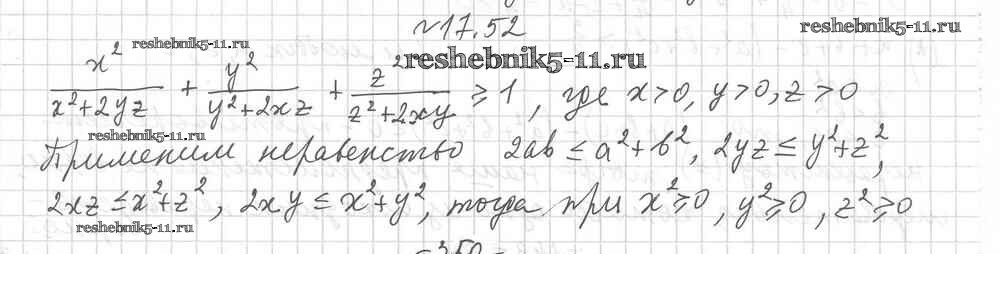 ~17.52
reshebnik5-11.ru
reshebnik5-11.ru
reshebnik5-11.ru
x²/(x²+2yz) + y²/(y²+2xz) + z²/(z²+2xy) ≥ 1, где x>0, y>0, z>0
reshebnik5-11.ru
Применим неравенство 2ab ≤ a²+b², 2yz ≤ y²+z²,
2xz ≤ x²+z², 2xy ≤ x²+y², тогда при x²≥0, y²≥0, z²≥0
reshebnik5-11.ru